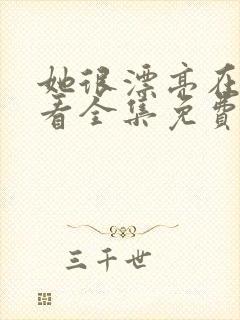 她很漂亮在
看全集免費
三千世